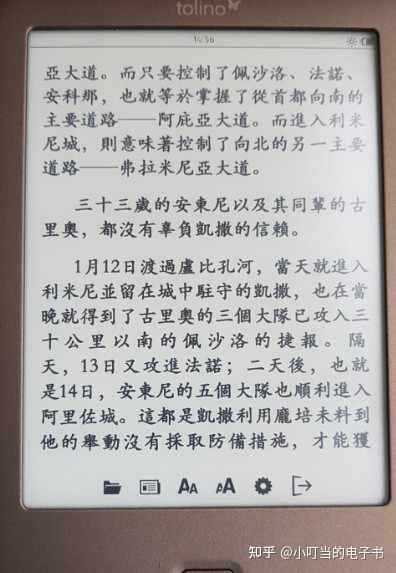 tolino
14:36
亞大道。而只要控制了佩沙洛、法諾、
安科那，也就等於掌握了從首都向南的
主要道路——阿庇亞大道。而進入利米
尼城，則意味著控制了向北的另一主要
道路——弗拉米尼亞大道。
三十三歲的安東尼以及其同輩的古
里奧，都沒有辜負凱撒的信賴。
1月12日渡過盧比孔河，當天就進入
利米尼並留在城中駐守的凱撒，也在當
晚就得到了古里奧的三個大隊已攻入三
十公里以南的佩沙洛的捷報。隔
天，13日又攻進法諾；二天後，也就
是14日，安東尼的五個大隊也順利進入
阿里佐城。這都是凱撒利用龐培未料到
他的舉動沒有採取防備措施，才能獲
AA
AA
知乎 @小叮当的电子书